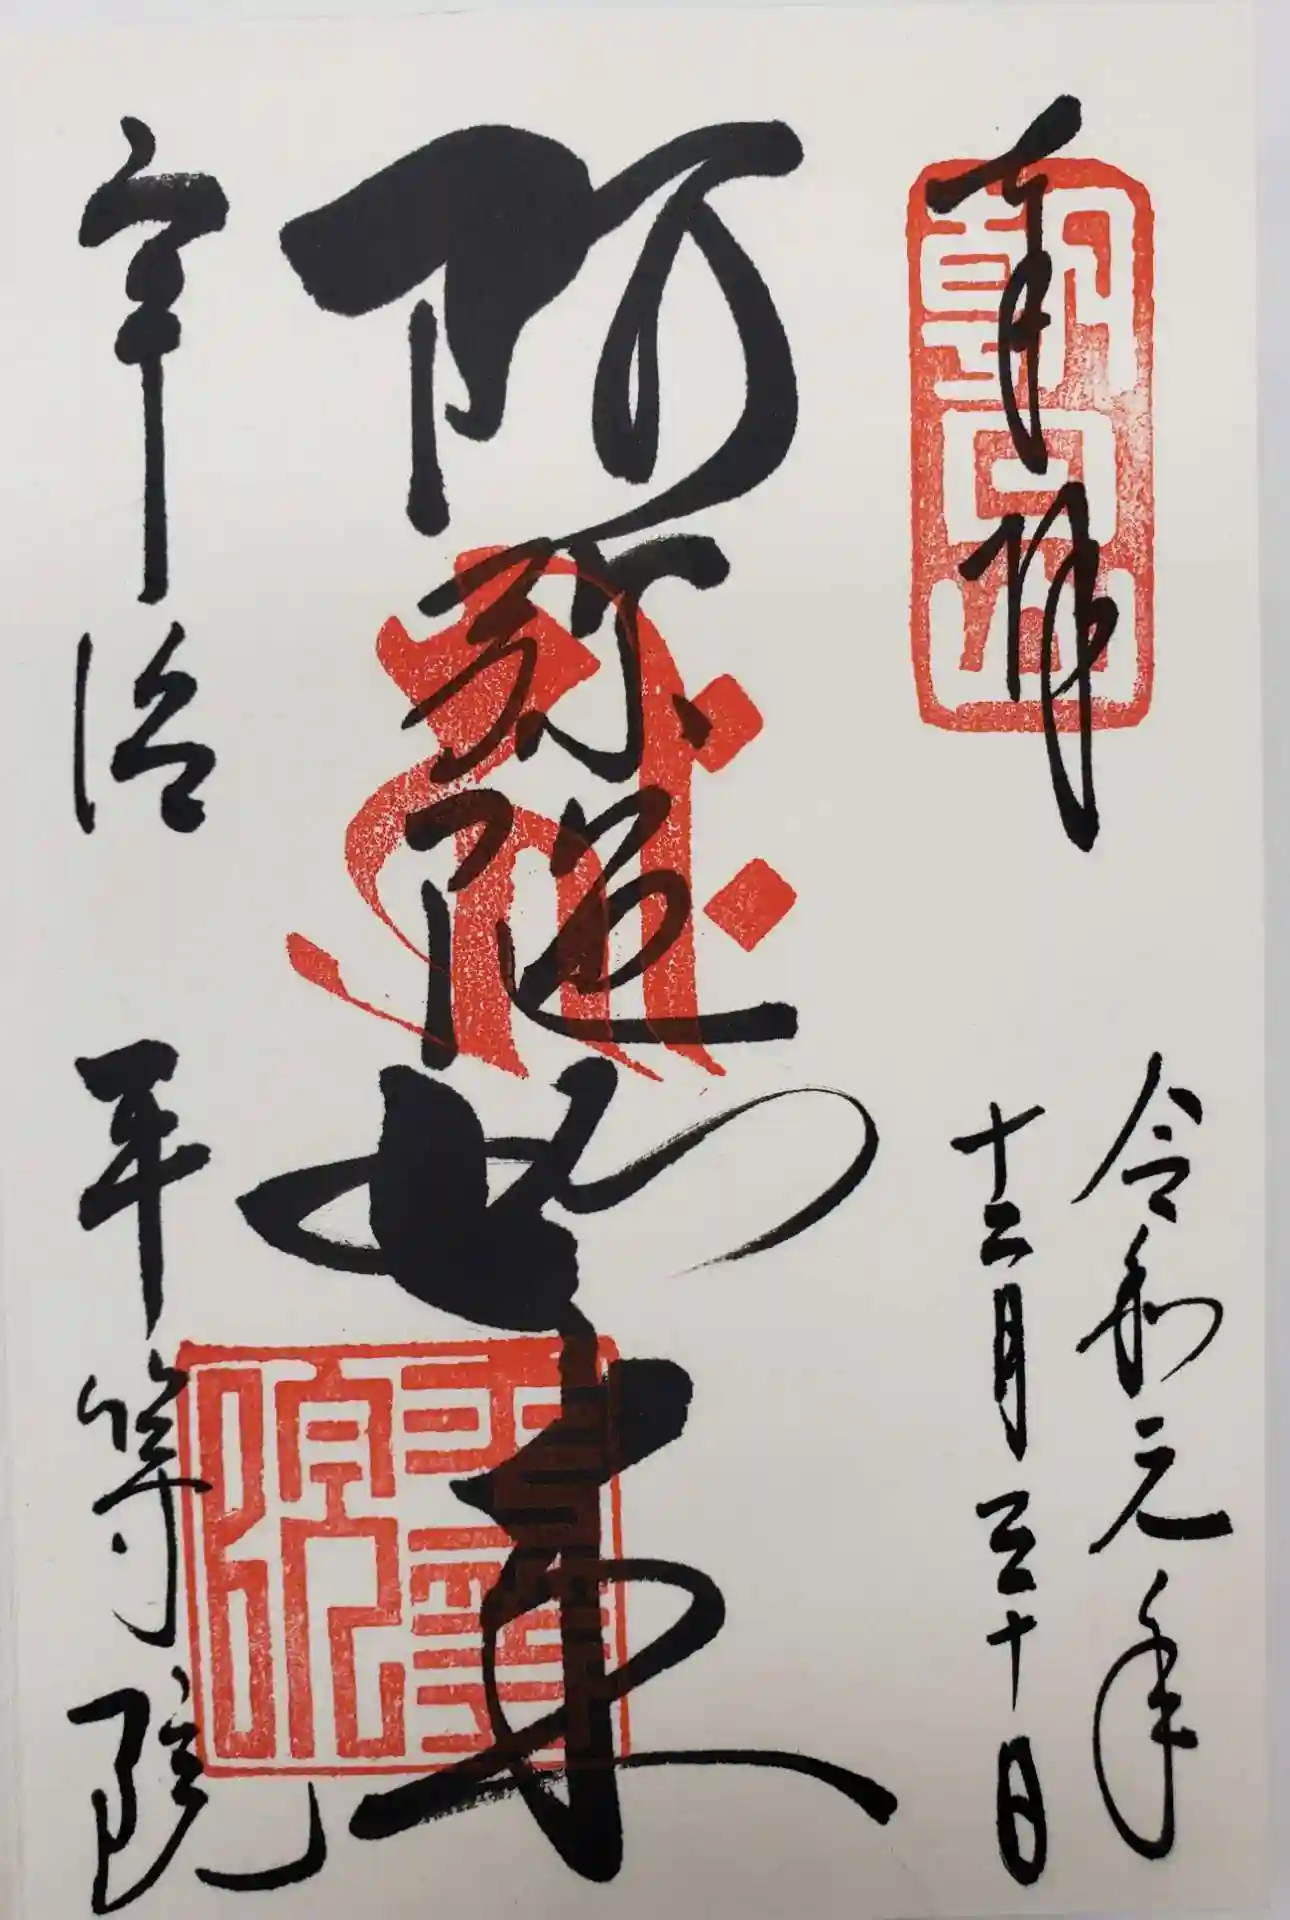 奉拝
朝日山
令和元年
十二月三十日
阿弥陀如来
宇治 平等院
平等院印